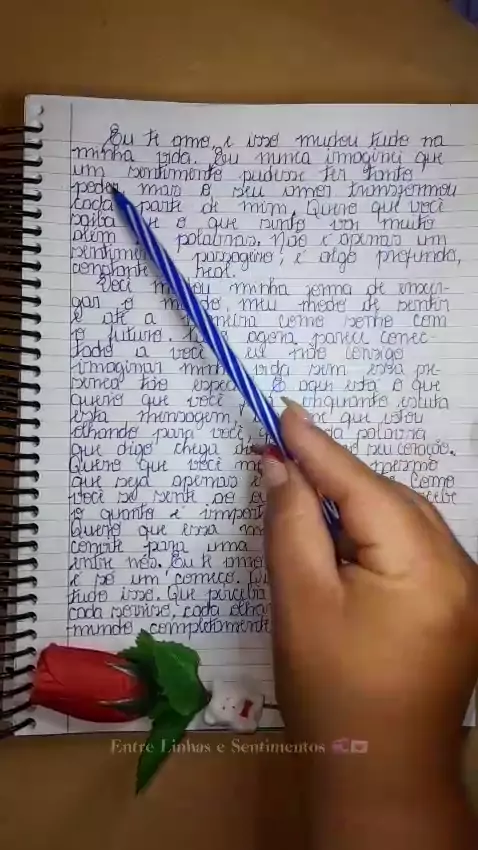 Eu te amo, e isso mudou tudo na
minha vida. Eu nunca imaginei que
um sentimento pudesse ter tanto
poder, mas o seu amor transformou
cada parte de mim. Quero que você
saiba o que sinto vai muito
além palavras. Não é apenas um
sentimento passageiro, é algo profundo,
constante real.
Você minha forma de enxer-
gar o meu modo de sentir
e até a como sonho com
o futuro. agora parece conec-
tado a você não consigo
imaginar vida sem essa pre-
sença tão E aqui está o que
quero que você enquanto escuta
esta mensagem, que estou
olhando para você, palavra
que digo chega seu coração.
Quero que você mesmo
que seja apenas Como
você se sente ao
o quanto é
Quero que essa
convite para uma
entre nós. Eu te amo
é só um começo.
tudo isso. Que perceba
cada sorriso, cada
mundo completamente
Entre Linhas e Sentimentos